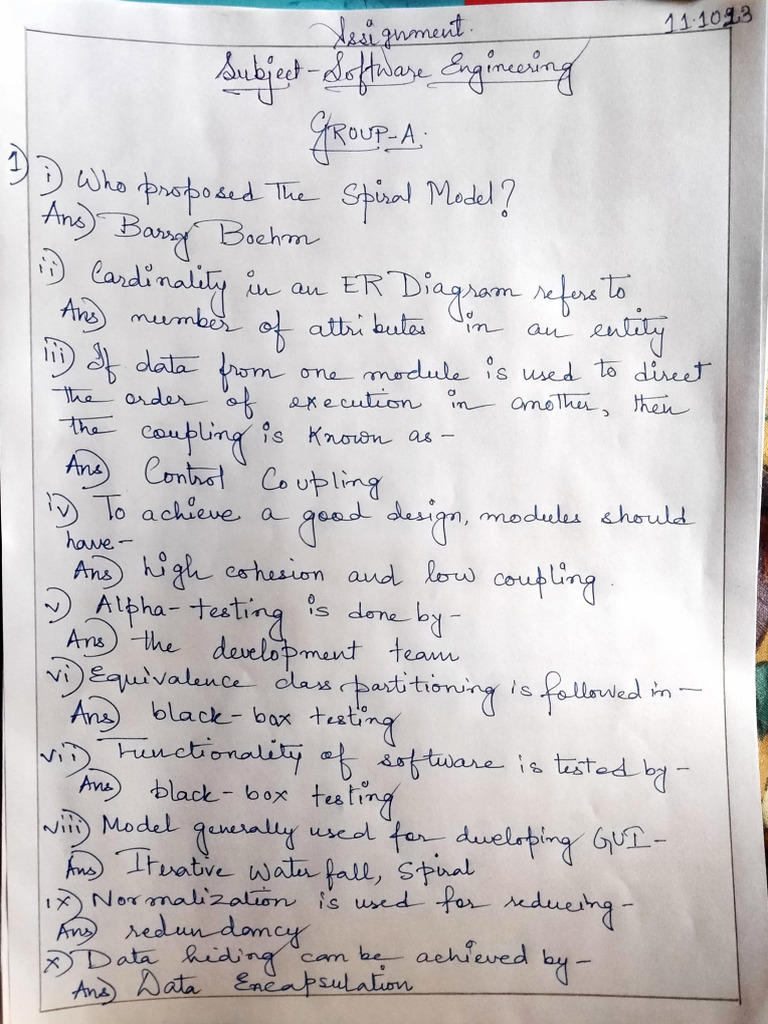 Assignment.
11.10.23
Subject - Software Engineering
GROUP-A.
1) i) Who proposed the Spiral Model?
Ans) Barry Boehm
ii) Cardinality in an ER Diagram refers to
Ans) number of attributes in an entity
iii) If data from one module is used to direct
the order of execution in another, then
the coupling is known as -
Ans) Control Coupling
iv) To achieve a good design, modules should
have -
Ans) high cohesion and low coupling.
v) Alpha-testing is done by -
Ans) the development team
vi) Equivalence class partitioning is followed in -
Ans) black-box testing
vii) Functionality of software is tested by -
Ans) black-box testing
viii) Model generally used for developing GUI -
Ans) Iterative Waterfall, Spiral
ix) Normalization is used for reducing -
Ans) redundancy
x) Data hiding can be achieved by -
Ans) Data Encapsulation